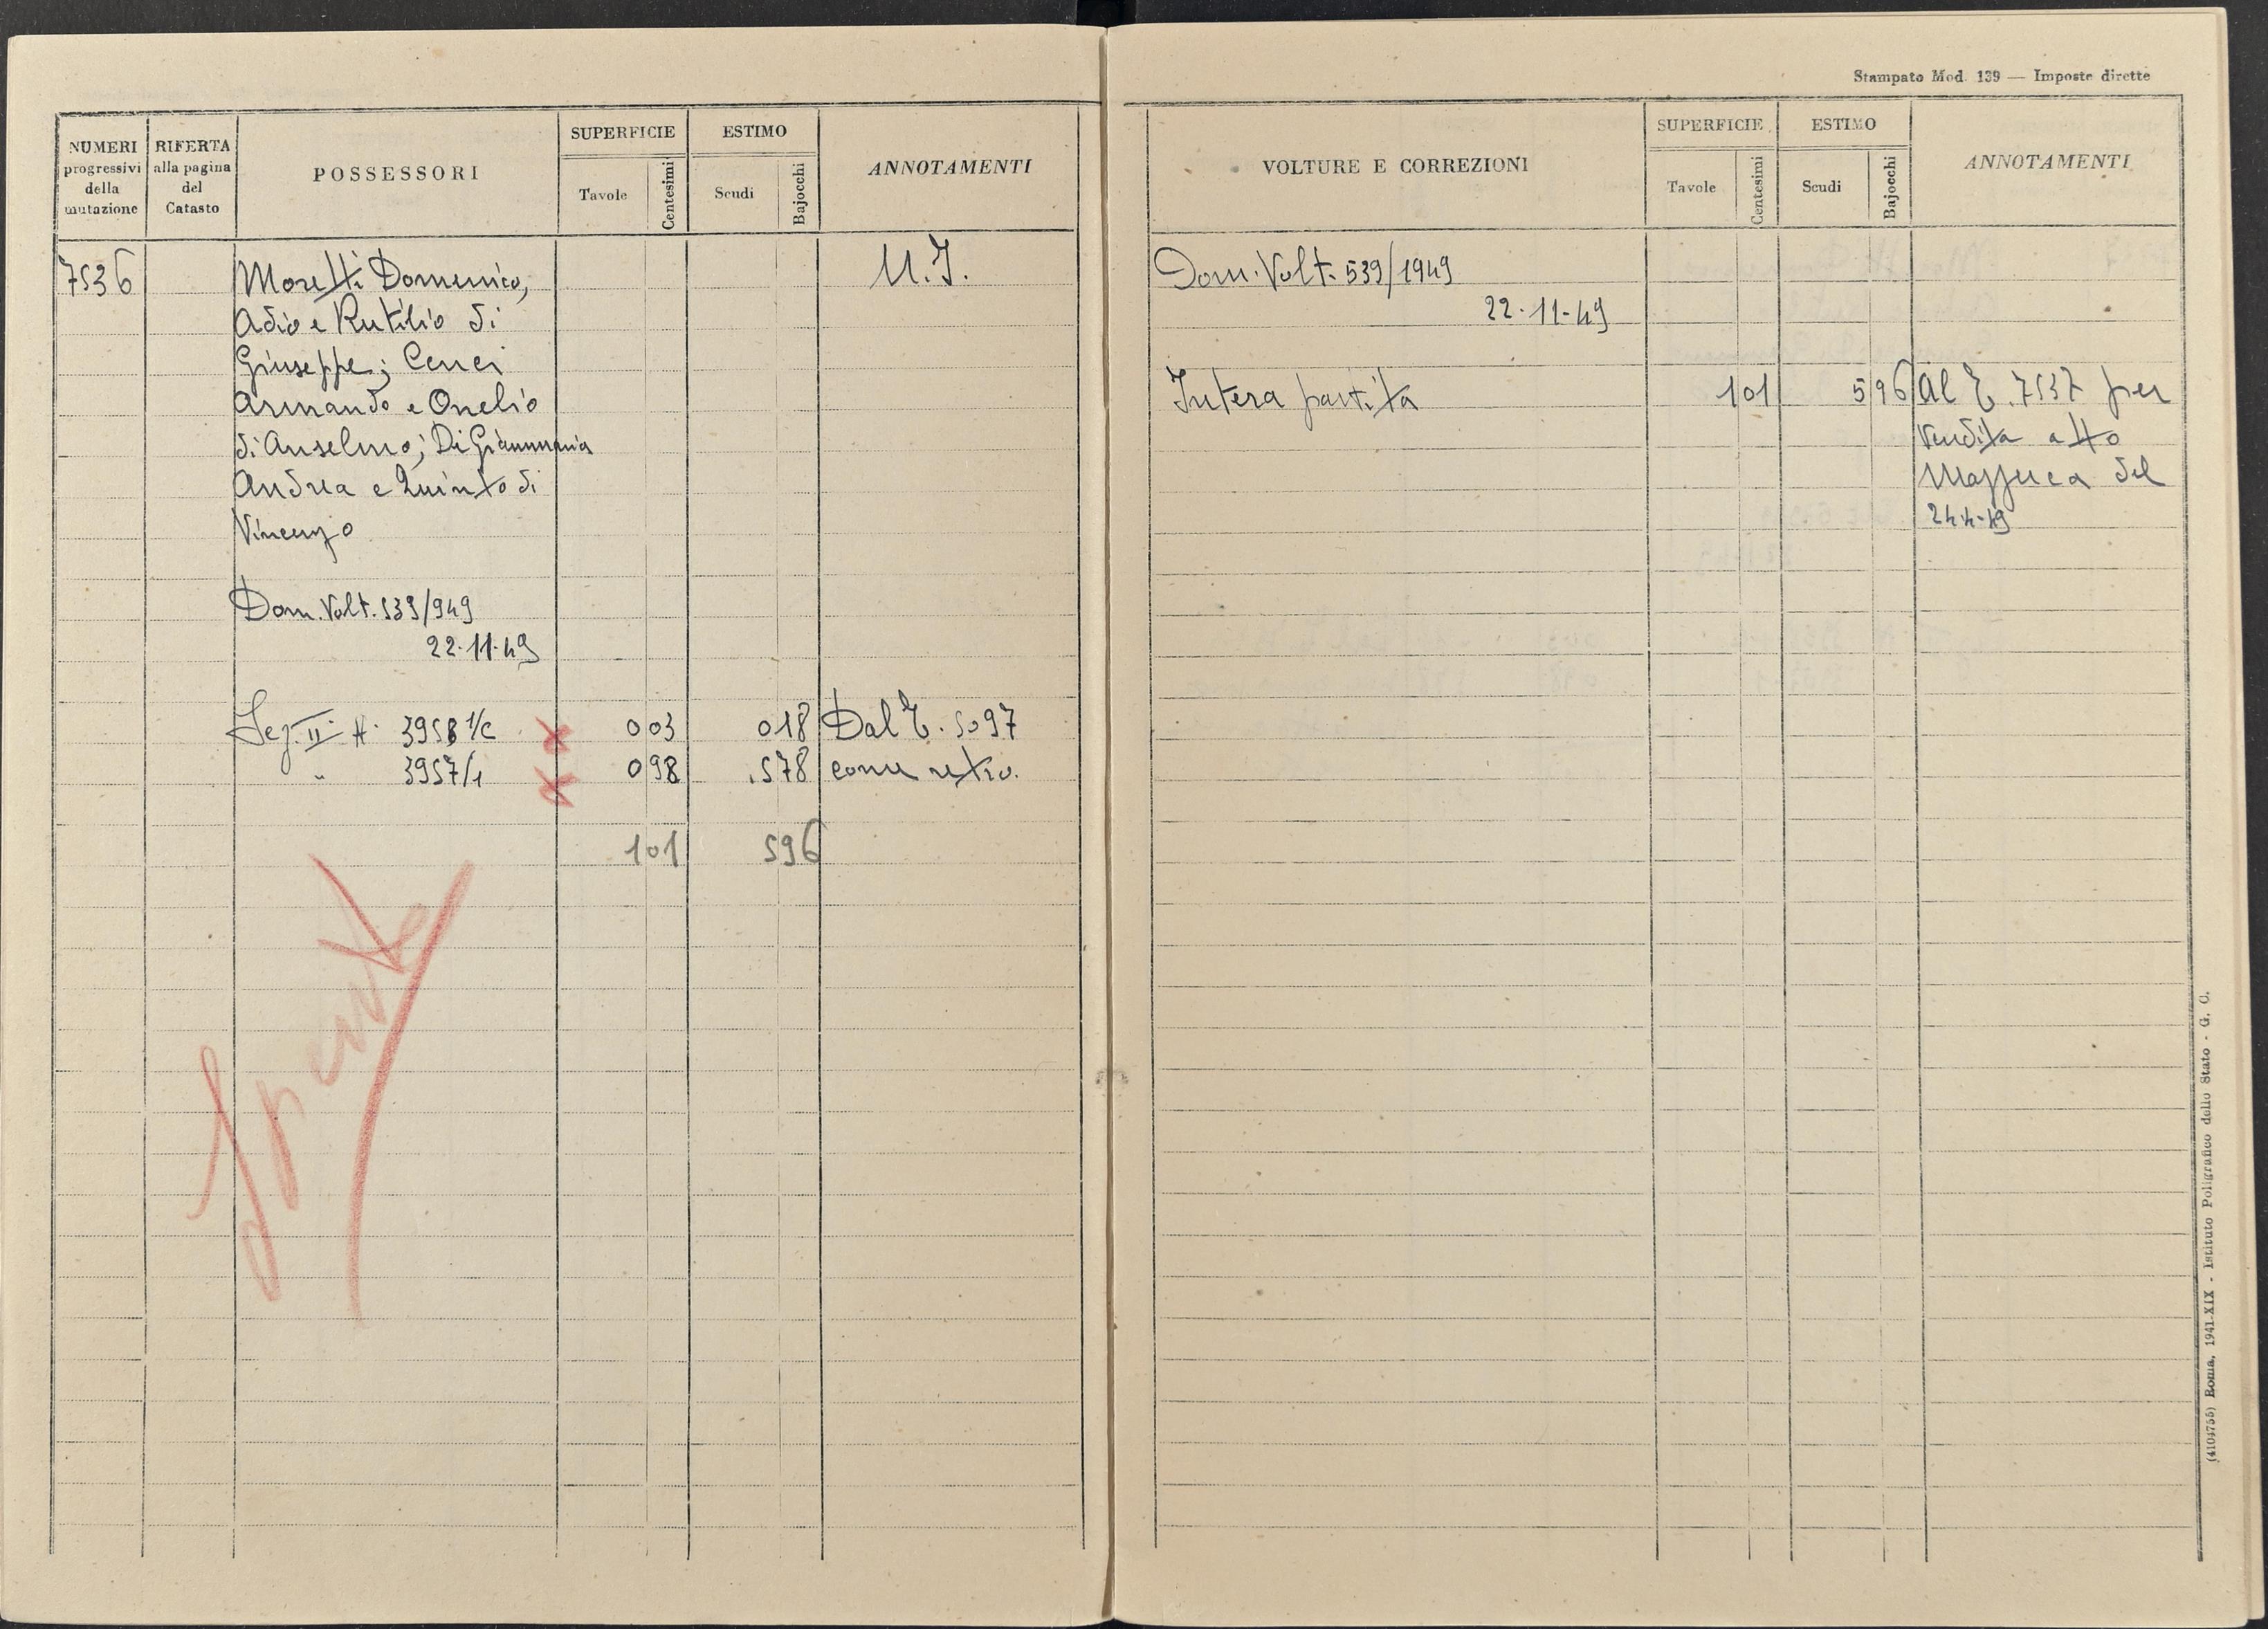 NUMERI progressivi della mutazione
RIFERTA alla pagina del Catasto
POSSESSORI
SUPERFICIE
Tavole
Centesimi
ESTIMO
Scudi
Bajocchi
ANNOTAMENTI
7536
Moretti Domenico,
Adio e Rutilio di
Giuseppe; Cenci
Armando e Onelio
di Anselmo; Di Giammaria
Andrea e Quinto di
Vincenzo
U.I.
Dom. Volt. 539/949
22-11-49
Sez. II N. 3958 1/c 0 03 0 18 Dal T. 5097
" 3957/1 0 98 5 78 come retro.
1 01 5 96
Spenta
Stampato Mod. 139 — Imposte dirette
VOLTURE E CORREZIONI
SUPERFICIE
Tavole
Centesimi
ESTIMO
Scudi
Bajocchi
ANNOTAMENTI
Dom. Volt. 539/1949
22-11-49
Intera partita 1 01 5 96 Al T. 7537 per
vendita atto
Mazzuca del
24-4-49
(4104755) Roma, 1941-XIX - Istituto Poligrafico dello Stato - G. C.